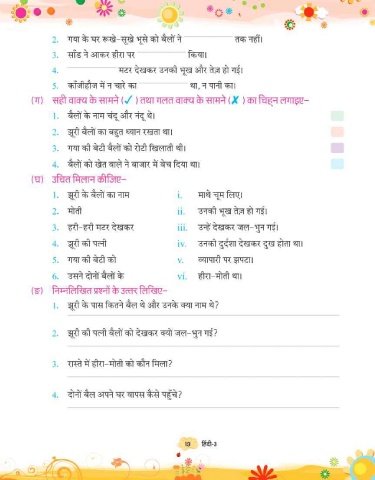 2. गया के घर रूखे-सूखे भूसे को बैलों ने ____________ तक नहीं।
3. साँड ने आकर हीरा पर ____________ किया।
4. ____________ मटर देखकर उनकी भूख और तेज़ हो गई।
5. काँजीहौज में न चारे का ____________ था, न पानी का।
(ग) सही वाक्य के सामने (✓) तथा गलत वाक्य के सामने (✗) का चिह्न लगाइए-
1. बैलों के नाम चंदू और नंदू थे।
2. झूरी बैलों का बहुत ध्यान रखता था।
3. गया की बेटी बैलों को रोटी खिलाती थी।
4. बैलों को खेत वाले ने बाजार में बेच दिया था।
(घ) उचित मिलान कीजिए-
1. झूरी के बैलों का नाम i. माथे चूम लिए।
2. मोती ii. उनकी भूख तेज़ हो गई।
3. हरी-हरी मटर देखकर iii. उन्हें देखकर जल-भुन गई।
4. झूरी की पत्नी iv. उनकी दुर्दशा देखकर दुख होता था।
5. गया की बेटी को v. व्यापारी पर झपटा।
6. उसने दोनों बैलों के vi. हीरा-मोती था।
(ङ) निम्नलिखित प्रश्नों के उत्तर लिखिए-
1. झूरी के पास कितने बैल थे और उनके क्या नाम थे?
2. झूरी की पत्नी बैलों को देखकर क्यों जल-भुन गई?
3. रास्ते में हीरा-मोती को कौन मिला?
4. दोनों बैल अपने घर वापस कैसे पहुँचे?
हिंदी-3